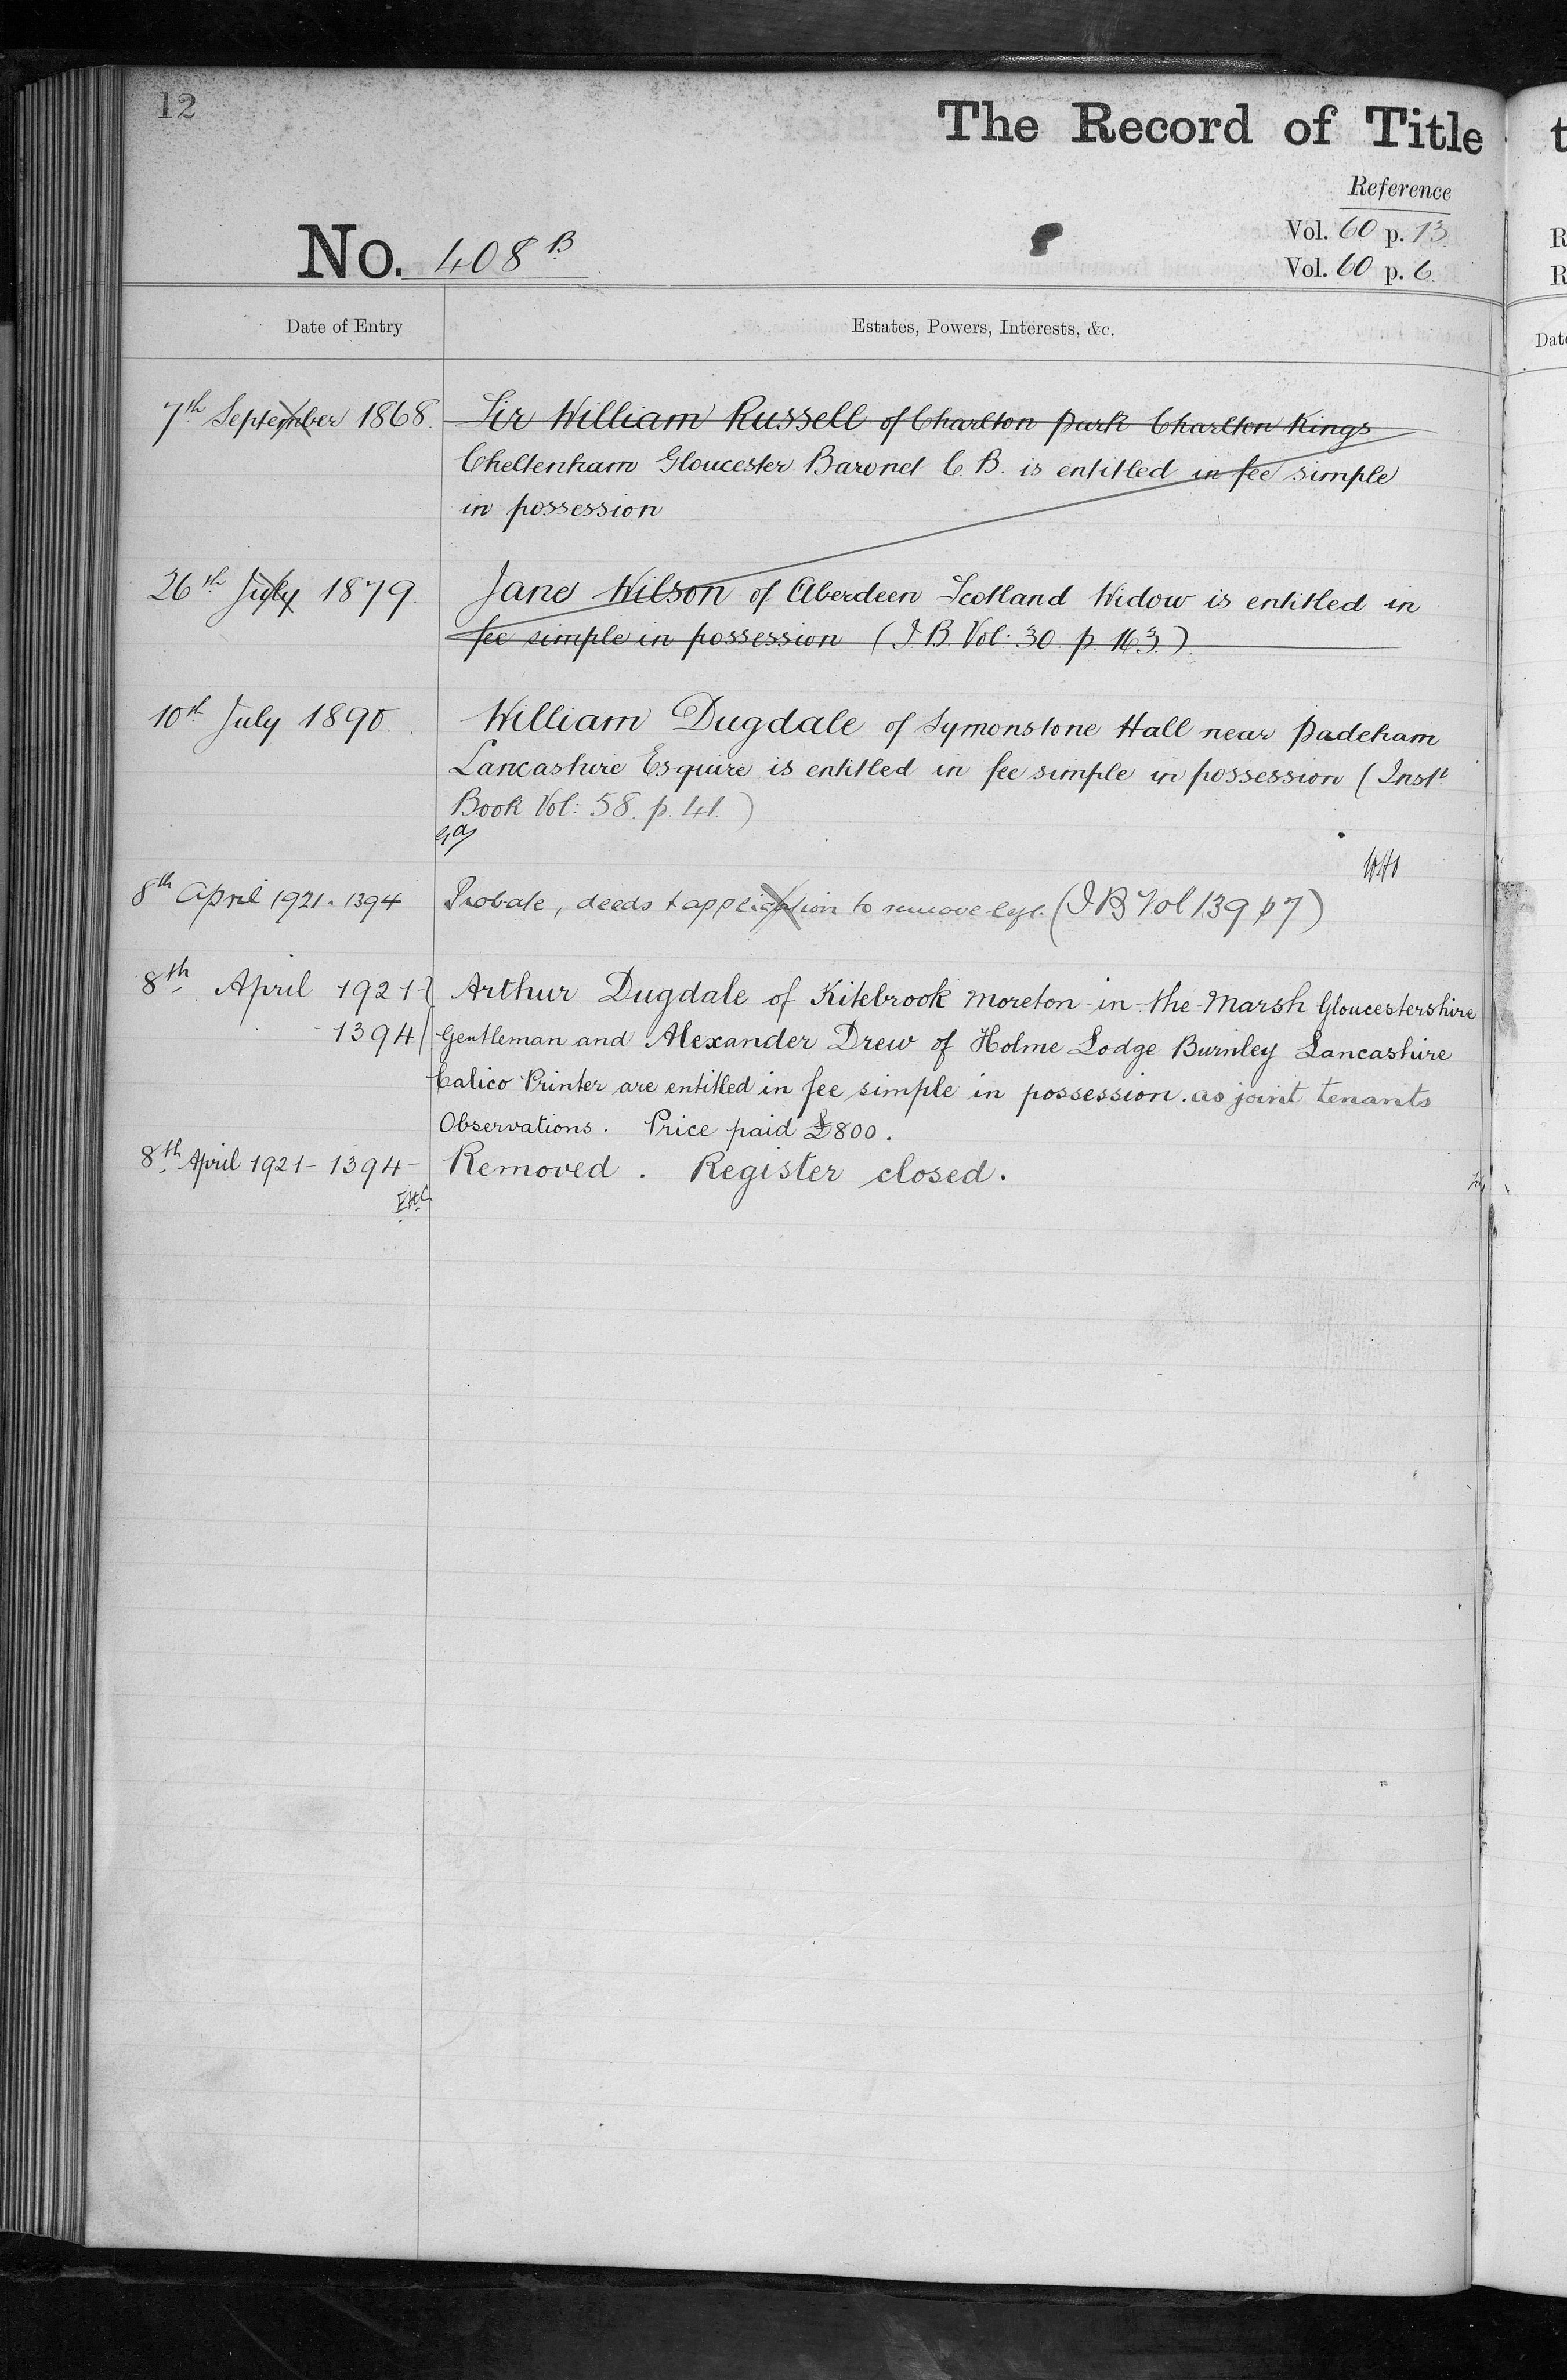 12
The Record of Title
Reference
Vol. 60 p. 13
No. 408 B
Vol. 60 p. 6.
Date of Entry
Estates, Powers, Interests, &c.
7th September 1868. Sir William Russell of Charlton Park Charlton Kings
Cheltenham Gloucester Baronet C. B. is entitled in fee simple
in possession
26th July 1879. Jane Wilson of Aberdeen Scotland Widow is entitled in
fee simple in possession (I. B. Vol: 30. p. 163.)
10th July 1890. William Dugdale of Symonstone Hall near Padeham
Lancashire Esquire is entitled in fee simple in possession (Inst.
Book Vol: 58. p. 41.)
8th April 1921. 1394 Probate, deeds & application to remove (I B Vol 139 p 7)
8th April 1921 Arthur Dugdale of Kitebrook Moreton-in-the-Marsh Gloucestershire
- 1394 Gentleman and Alexander Drew of Holme Lodge Burnley Lancashire
Calico Printer are entitled in fee simple in possession. as joint tenants
Observations. Price paid £800.
8th April 1921 - 1394 - Removed. Register closed.
EHC
t
R
R
Dat